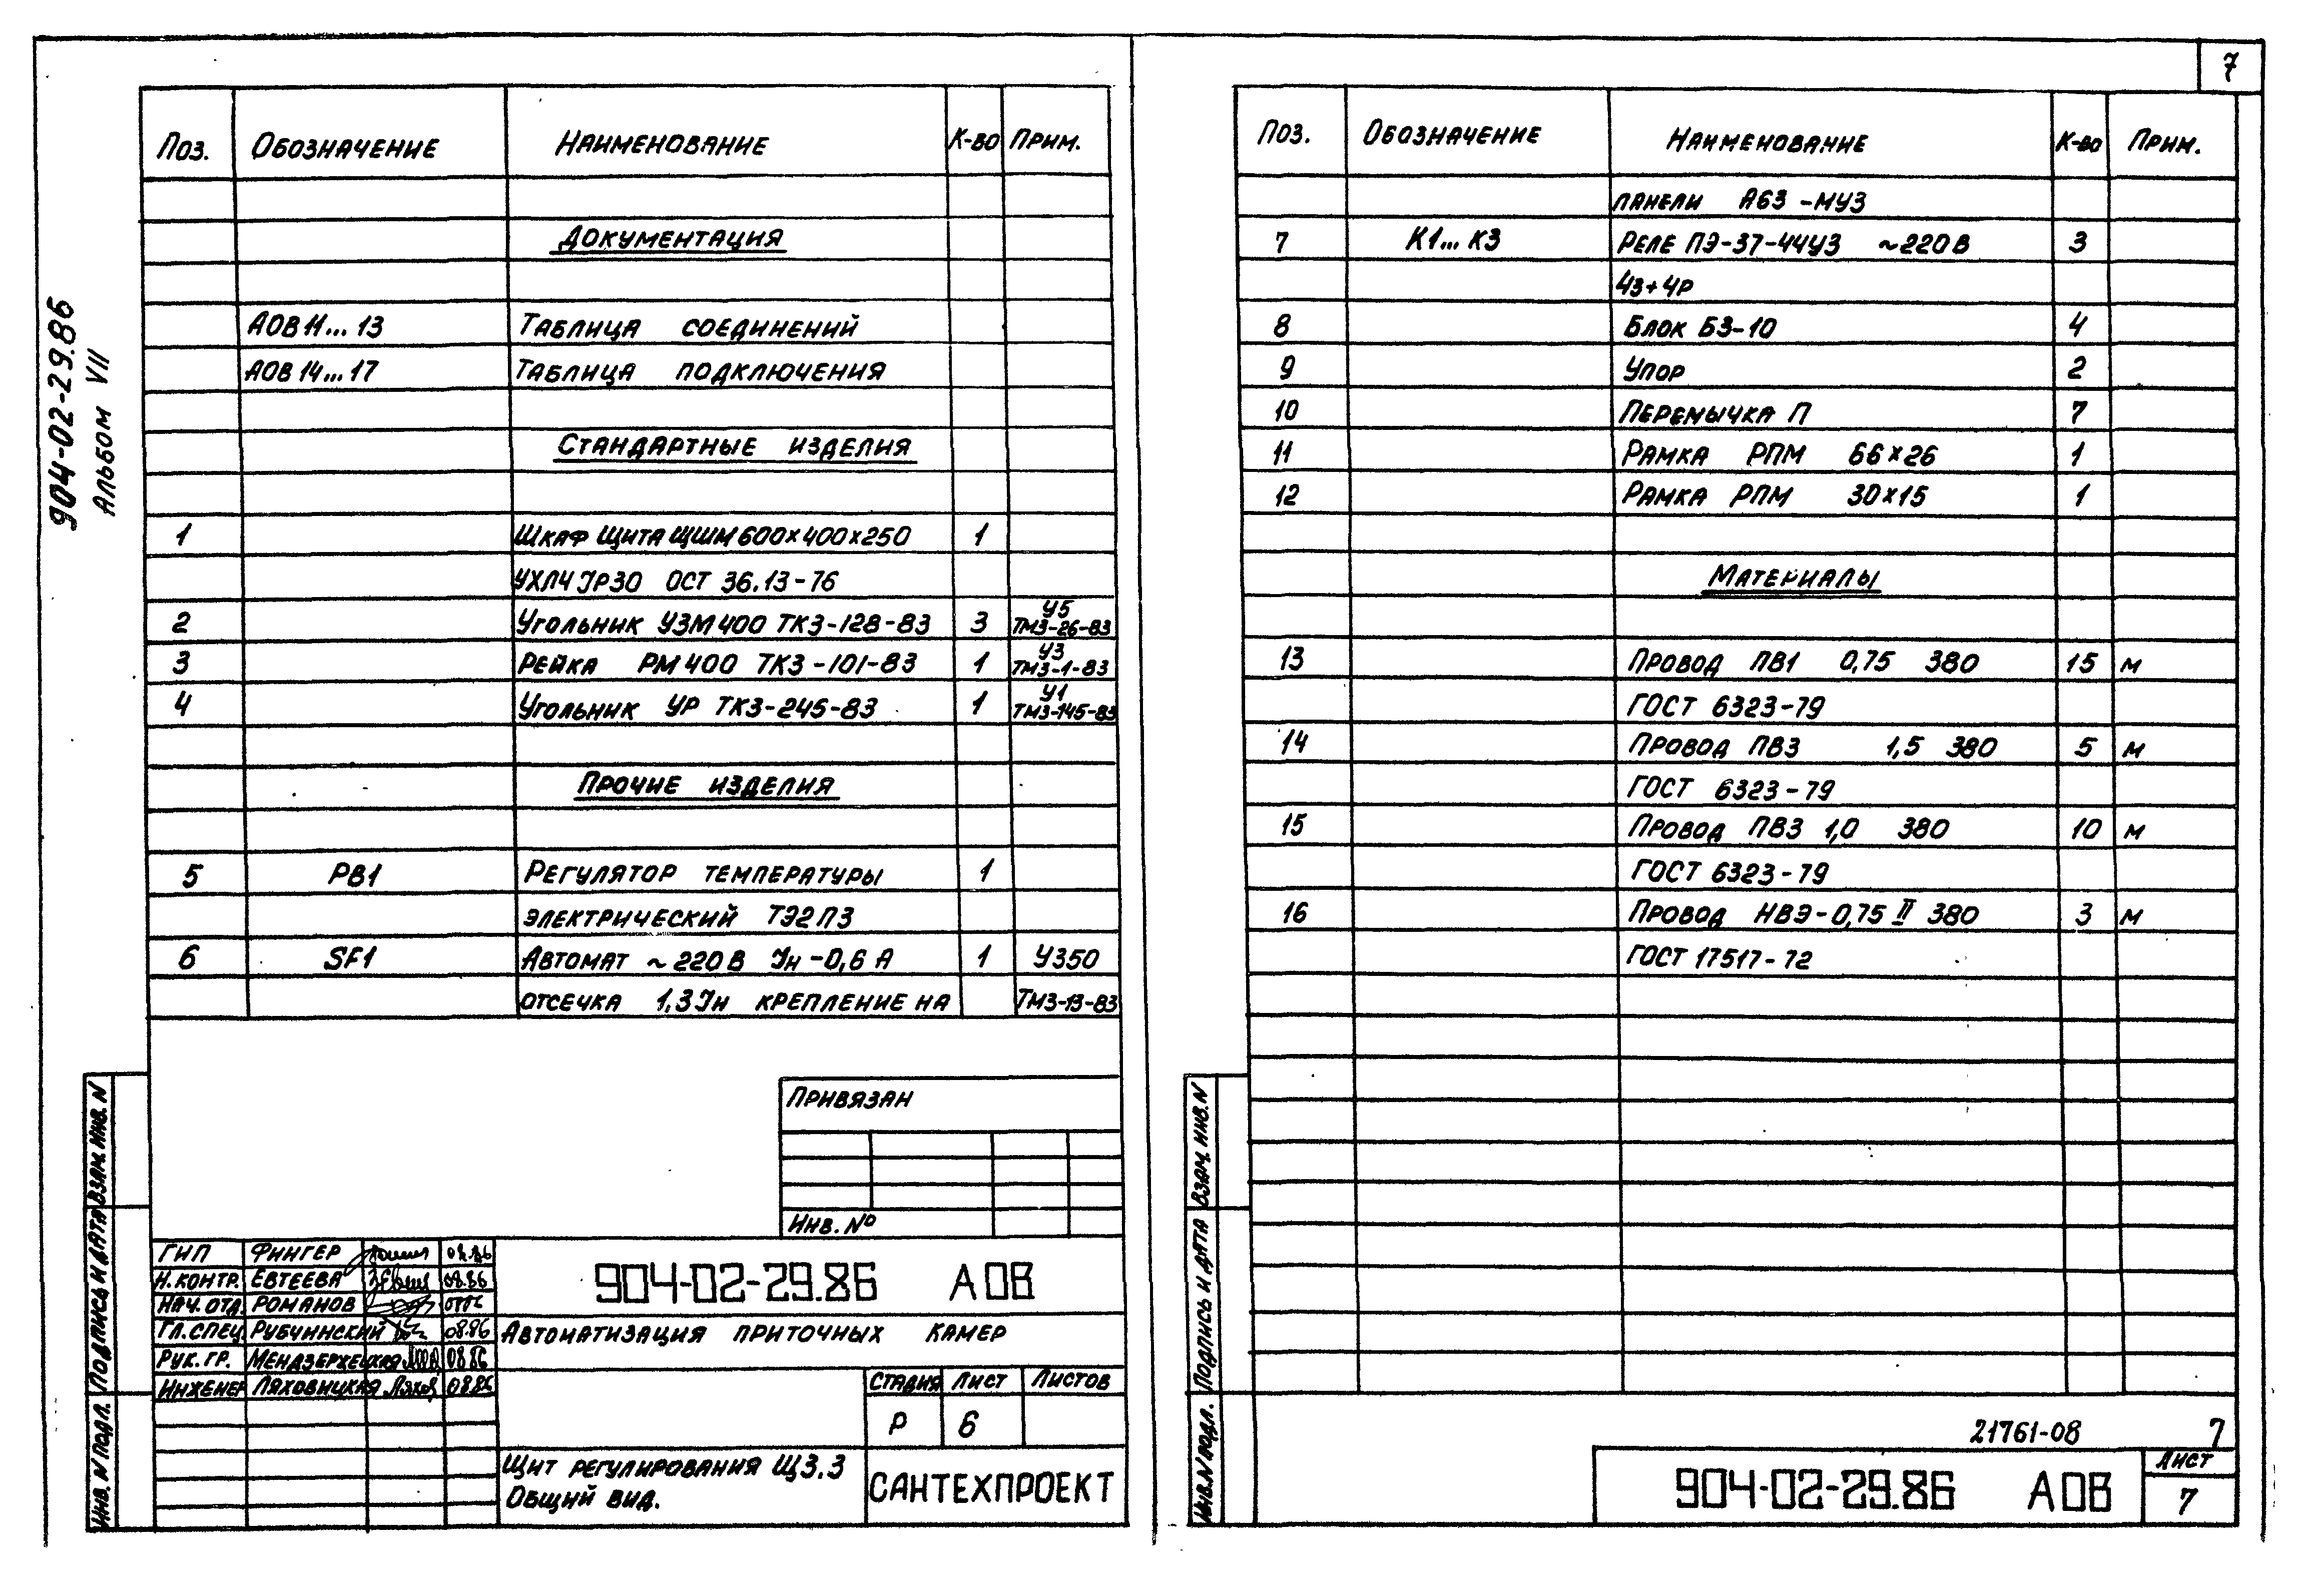 7
904-02-29.86
Альбом VII
Поз. Обозначение Наименование К-во Прим.
Документация
АОВ 11... 13 Таблица соединений
АОВ 14... 17 Таблица подключения
Стандартные изделия
1 Шкаф щита ЩШМ 600×400×250 1
УХЛ4 JP30 ОСТ 36.13-76
2 Угольник УЗМ400 ТК3-128-83 3 У5 ТМ3-26-83
3 Рейка РМ400 ТК3-101-83 1 У3 ТМ3-1-83
4 Угольник УР ТК3-245-83 1 У1 ТМ3-145-83
Прочие изделия
5 РВ1 Регулятор температуры 1
электрический ТЭ2П3
6 SF1 Автомат ~220В Jн-0,6А 1 У350
отсечка 1,3Jн крепление на ТМ3-13-83
Привязан
Инв. №
ГИП Фингер 08.86
Н.контр. Евтеева 08.86
Нач. отд. Романов
Гл.спец. Рубчинский 08.86
Рук. гр. Мендзержецкая 08.86
Инженер Ляховицкая 08.86
904-02-29.86 АОВ
Автоматизация приточных камер
Стадия Лист Листов
Р 6
Щит регулирования Щ3.3
Общий вид.
САНТЕХПРОЕКТ
Инв. N подл. Подпись и дата Взам. инв. N
Поз. Обозначение Наименование К-во Прим.
панели А63-МУ3
7 К1... К3 Реле ПЭ-37-44У3 ~220В 3
4з+4р
8 Блок БЗ-10 4
9 Упор 2
10 Перемычка П 7
11 Рамка РПМ 66×26 1
12 Рамка РПМ 30×15 1
Материалы
13 Провод ПВ1 0,75 380 15 м
ГОСТ 6323-79
14 Провод ПВ3 1,5 380 5 м
ГОСТ 6323-79
15 Провод ПВ3 1,0 380 10 м
ГОСТ 6323-79
16 Провод НВЭ-0,75 II 380 3 м
ГОСТ 17517-72
Инв. N подл. Подпись и дата Взам. инв. N
21761-08 7
904-02-29.86 АОВ
Лист
7